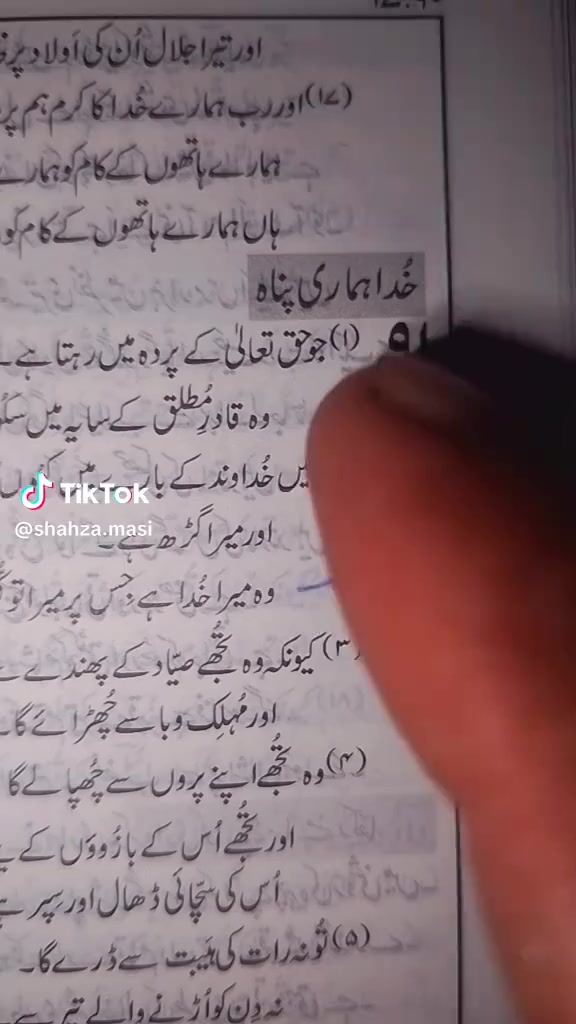 اور تیرا جلال اُن کی اَولاد پر
(۱۷) اور رب ہمارے خُدا کا کرم ہم پر
ہمارے ہاتھوں کے کام کو ہمارے
ہاں ہمارے ہاتھوں کے کام کو
خُدا ہماری پناہ
۹۱ (۱) جو حق تعالیٰ کے پردہ میں رہتا ہے۔
وہ قادرِ مُطلق کے سایہ میں
میں خُداوند کے بارے میں
اور میرا گڑھ ہے۔
وہ میرا خُدا ہے جِس پر میرا
(۳) کیونکہ وہ تُجھے صیّاد کے پھندے سے
اور مُہلِک وبا سے چُھڑائے گا۔
(۴) وہ تُجھے اپنے پروں سے چُھپا لے گا
اور تُجھے اُس کے بازُوؤں کے
اُس کی سچّائی ڈھال اور سِپر ہے
(۵) تُو نہ رات کی ہَیبت سے ڈرے گا۔
نہ دِن کو اُڑنے والے تیر سے
TikTok
@shahza.masi